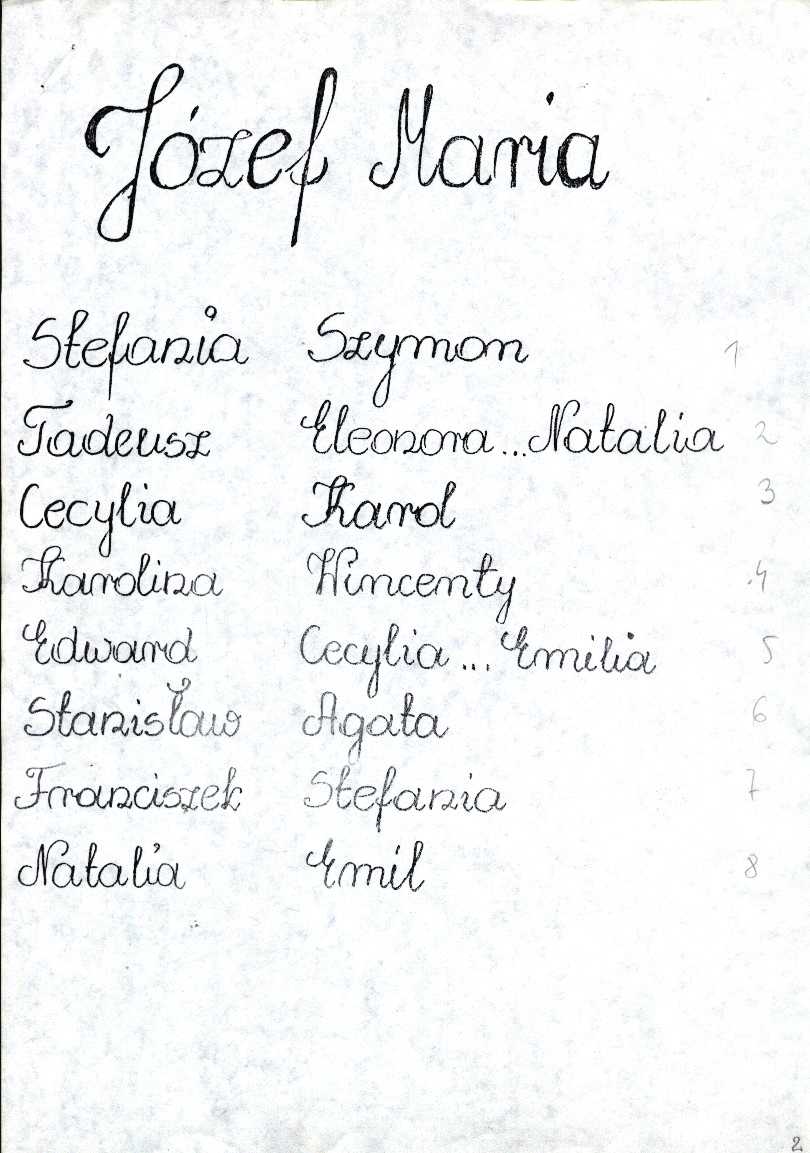 Józef Maria
Stefania Szymon 1
Tadeusz Eleonora...Natalia 2
Cecylia Karol 3
Karolina Wincenty 4
Edward Cecylia...Emilia 5
Stanisław Agata 6
Franciszek Stefania 7
Natalia Emil 8
2